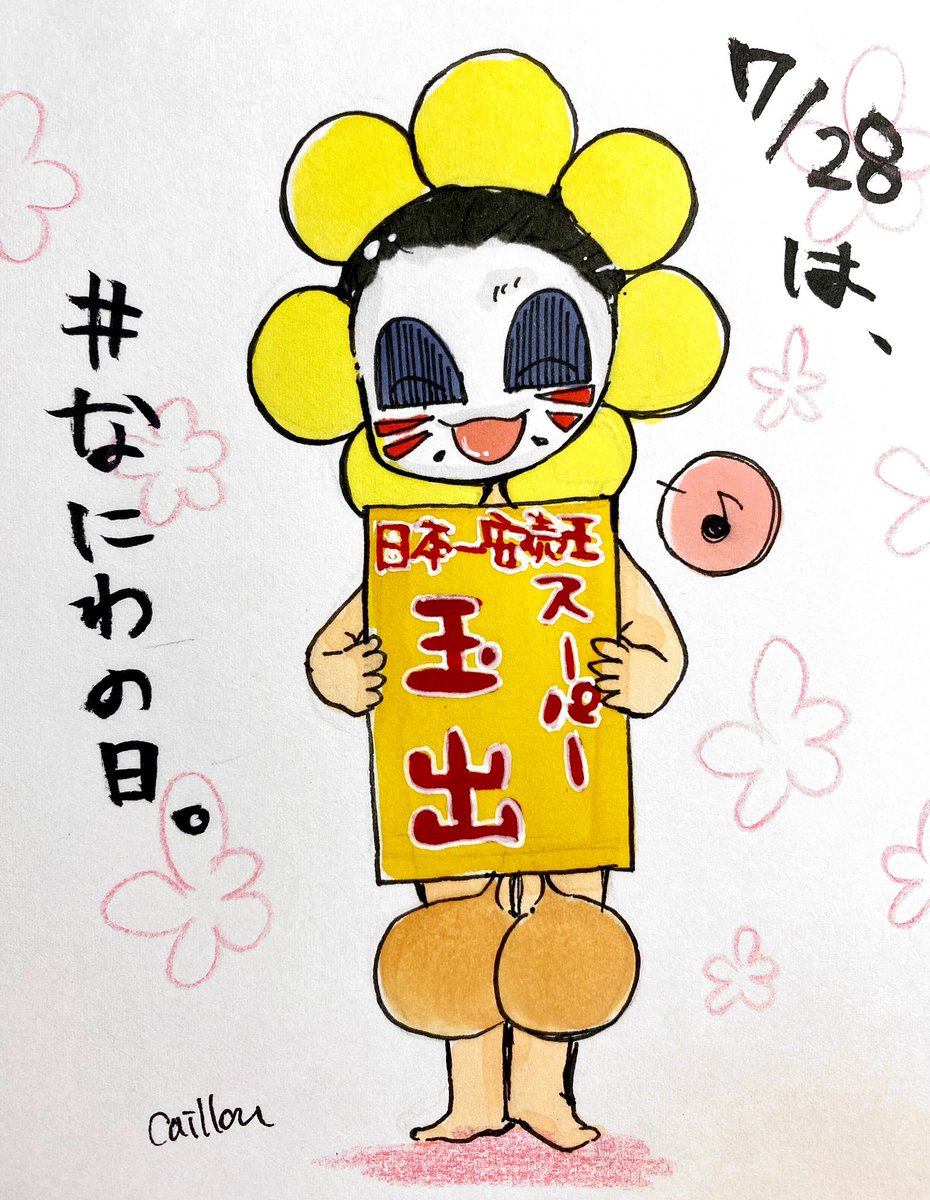 7/28は、
#なにわの日。
日本一安売王
スーパー
玉出
♪
Caillou